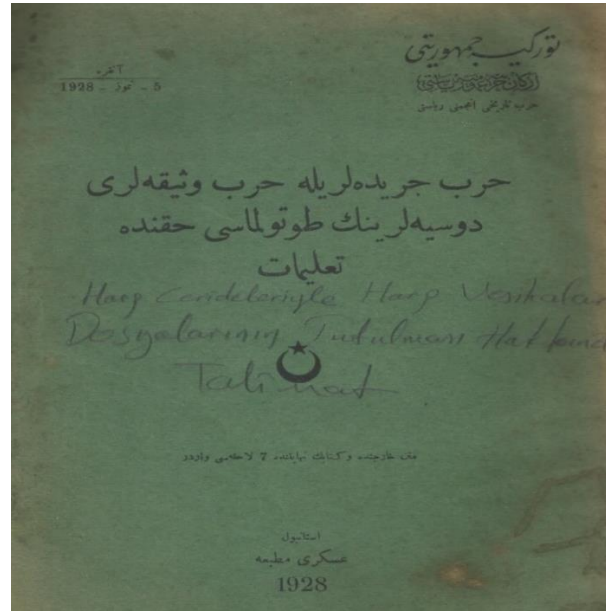 توركیه جمهوریتی
اركان حربیه عمومیه ریاستی
حرب تاریخی انجمنی ریاستی
آنقره
5 - تموز - 1928
حرب جریده‌لریله حرب وثیقه‌لری
دوسیه‌لرینك طوتولماسی حقنده
تعلیمات
Harp Cerideleriyle Harp Vesikaları
Dosyalarının Tutulması Hakkında
Talimat
متن خارجنده و كتابك نهایتنده 7 لاحقه‌سی واردر
استانبول
عسكری مطبعه
1928